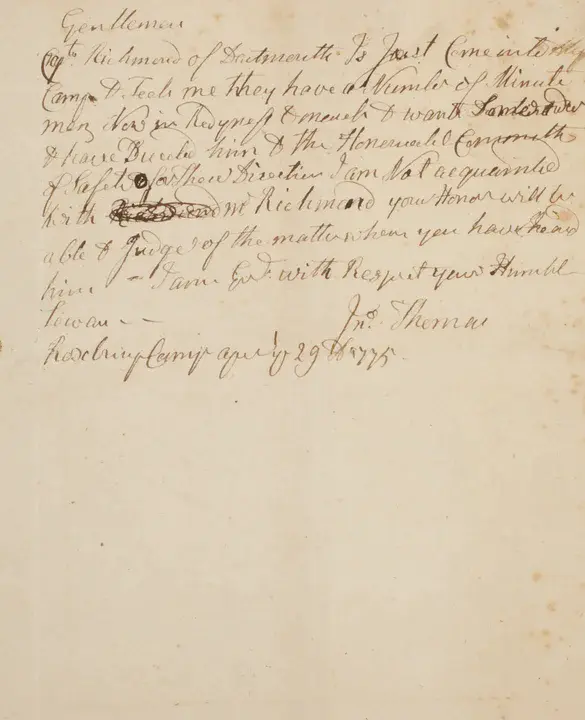 Gentlemen
Capt. Richmond of Dartmouth Is Just Come into
Camp & Tells me they have a Number of Minute
men Now in Redyness to march & wants
& have Directed him to the Honorable Committe
of Safete for thear Direction I am Not acquainted
with Mr Richmond your Honor will be
able to Judge of the matter when you have heard
him – I am Gentn. with Respect your Humble
Jno. Thomas
Roxbury Camp April ye 29th 1775